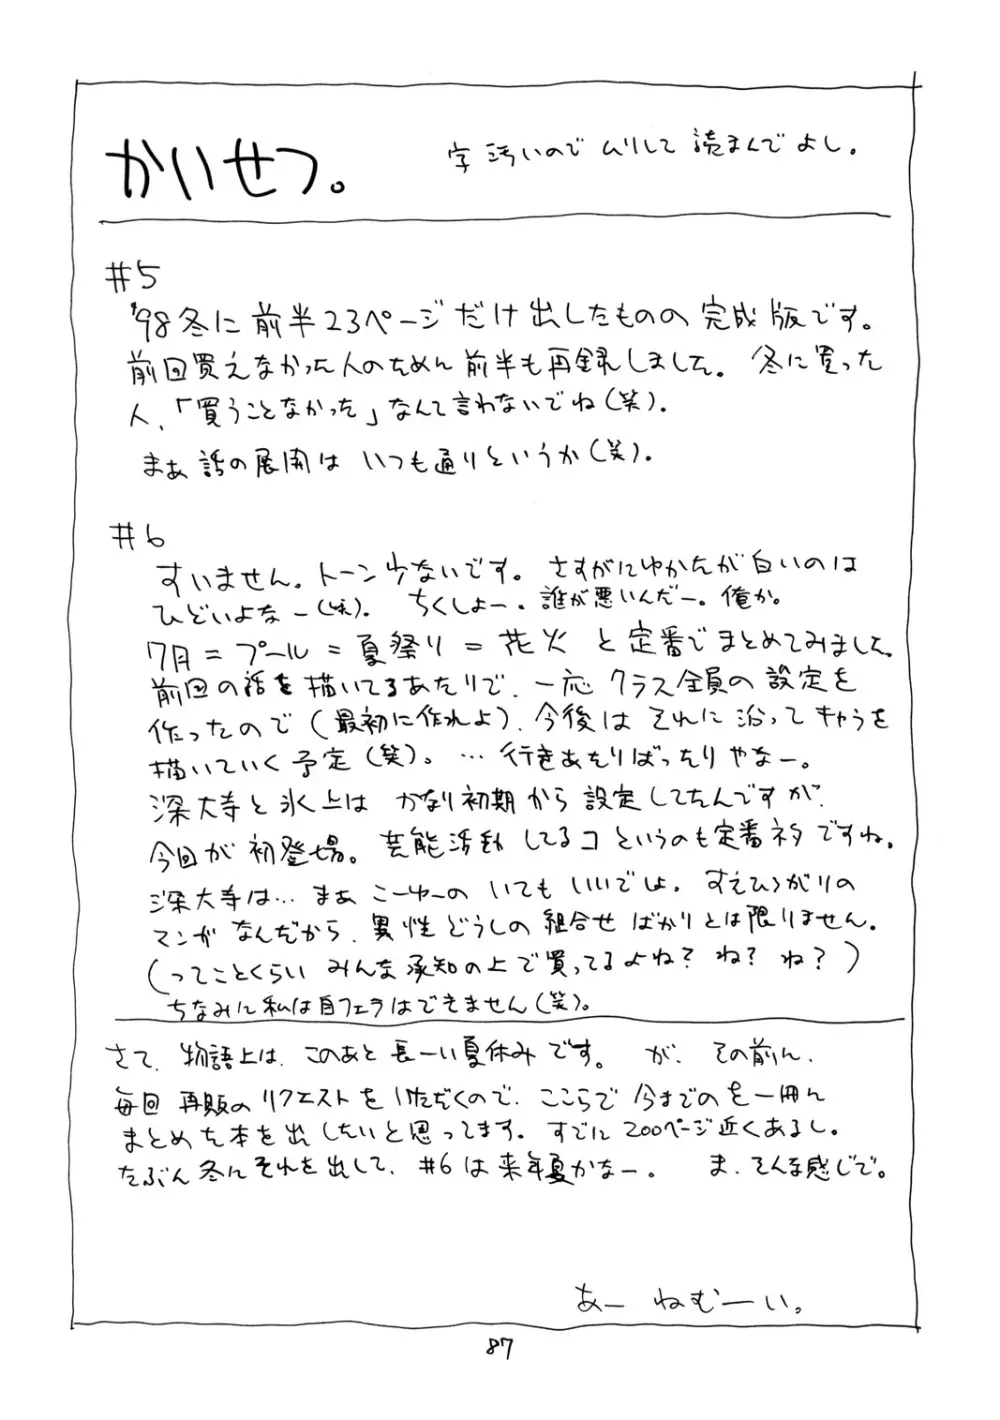 かいせつ。
字汚いのでムリして読まんでよし。
#5
'98冬に前半23ページだけ出したものの完成版です。
前回買えなかった人のために前半も再録しました。冬に買った
人、「買うことなかった」なんて言わないでね(笑)。
まぁ話の展開はいつも通りというか(笑)。
#6
すいません。トーン少ないです。さすがにゆかたが白いのは
ひどいよなー(泣)。ちくしょー。誰が悪いんだー。俺か。
7月=プール=夏祭り=花火と定番でまとめてみました。
前回の話を描いてるあたりで、一応クラス全員の設定を
作ったので(最初に作れよ)、今後はそれに沿ってキャラを
描いていく予定(笑)。…行きあたりばったりやなー。
深大寺と氷上はかなり初期から設定してたんですが、
今回が初登場。芸能活動してるコというのも定番ネタですね。
深大寺は…まぁこーゆーのいてもいいでしょ。すえひろがりの
マンガなんだから、異性どうしの組合せばかりとは限りません。
(ってことくらいみんな承知の上で買ってるよね?ね?ね?)
ちなみに私は自フェラはできません(笑)。
さて、物語上は、このあと長ーい夏休みです。が、その前に、
毎回再販のリクエストをいただくので、ここらで今までのを一冊に
まとめた本を出したいと思ってます。すでに200ページ近くあるし。
たぶん冬にそれを出して、#6は来年夏かなー。ま、そんな感じで。
あーねむーい。
87